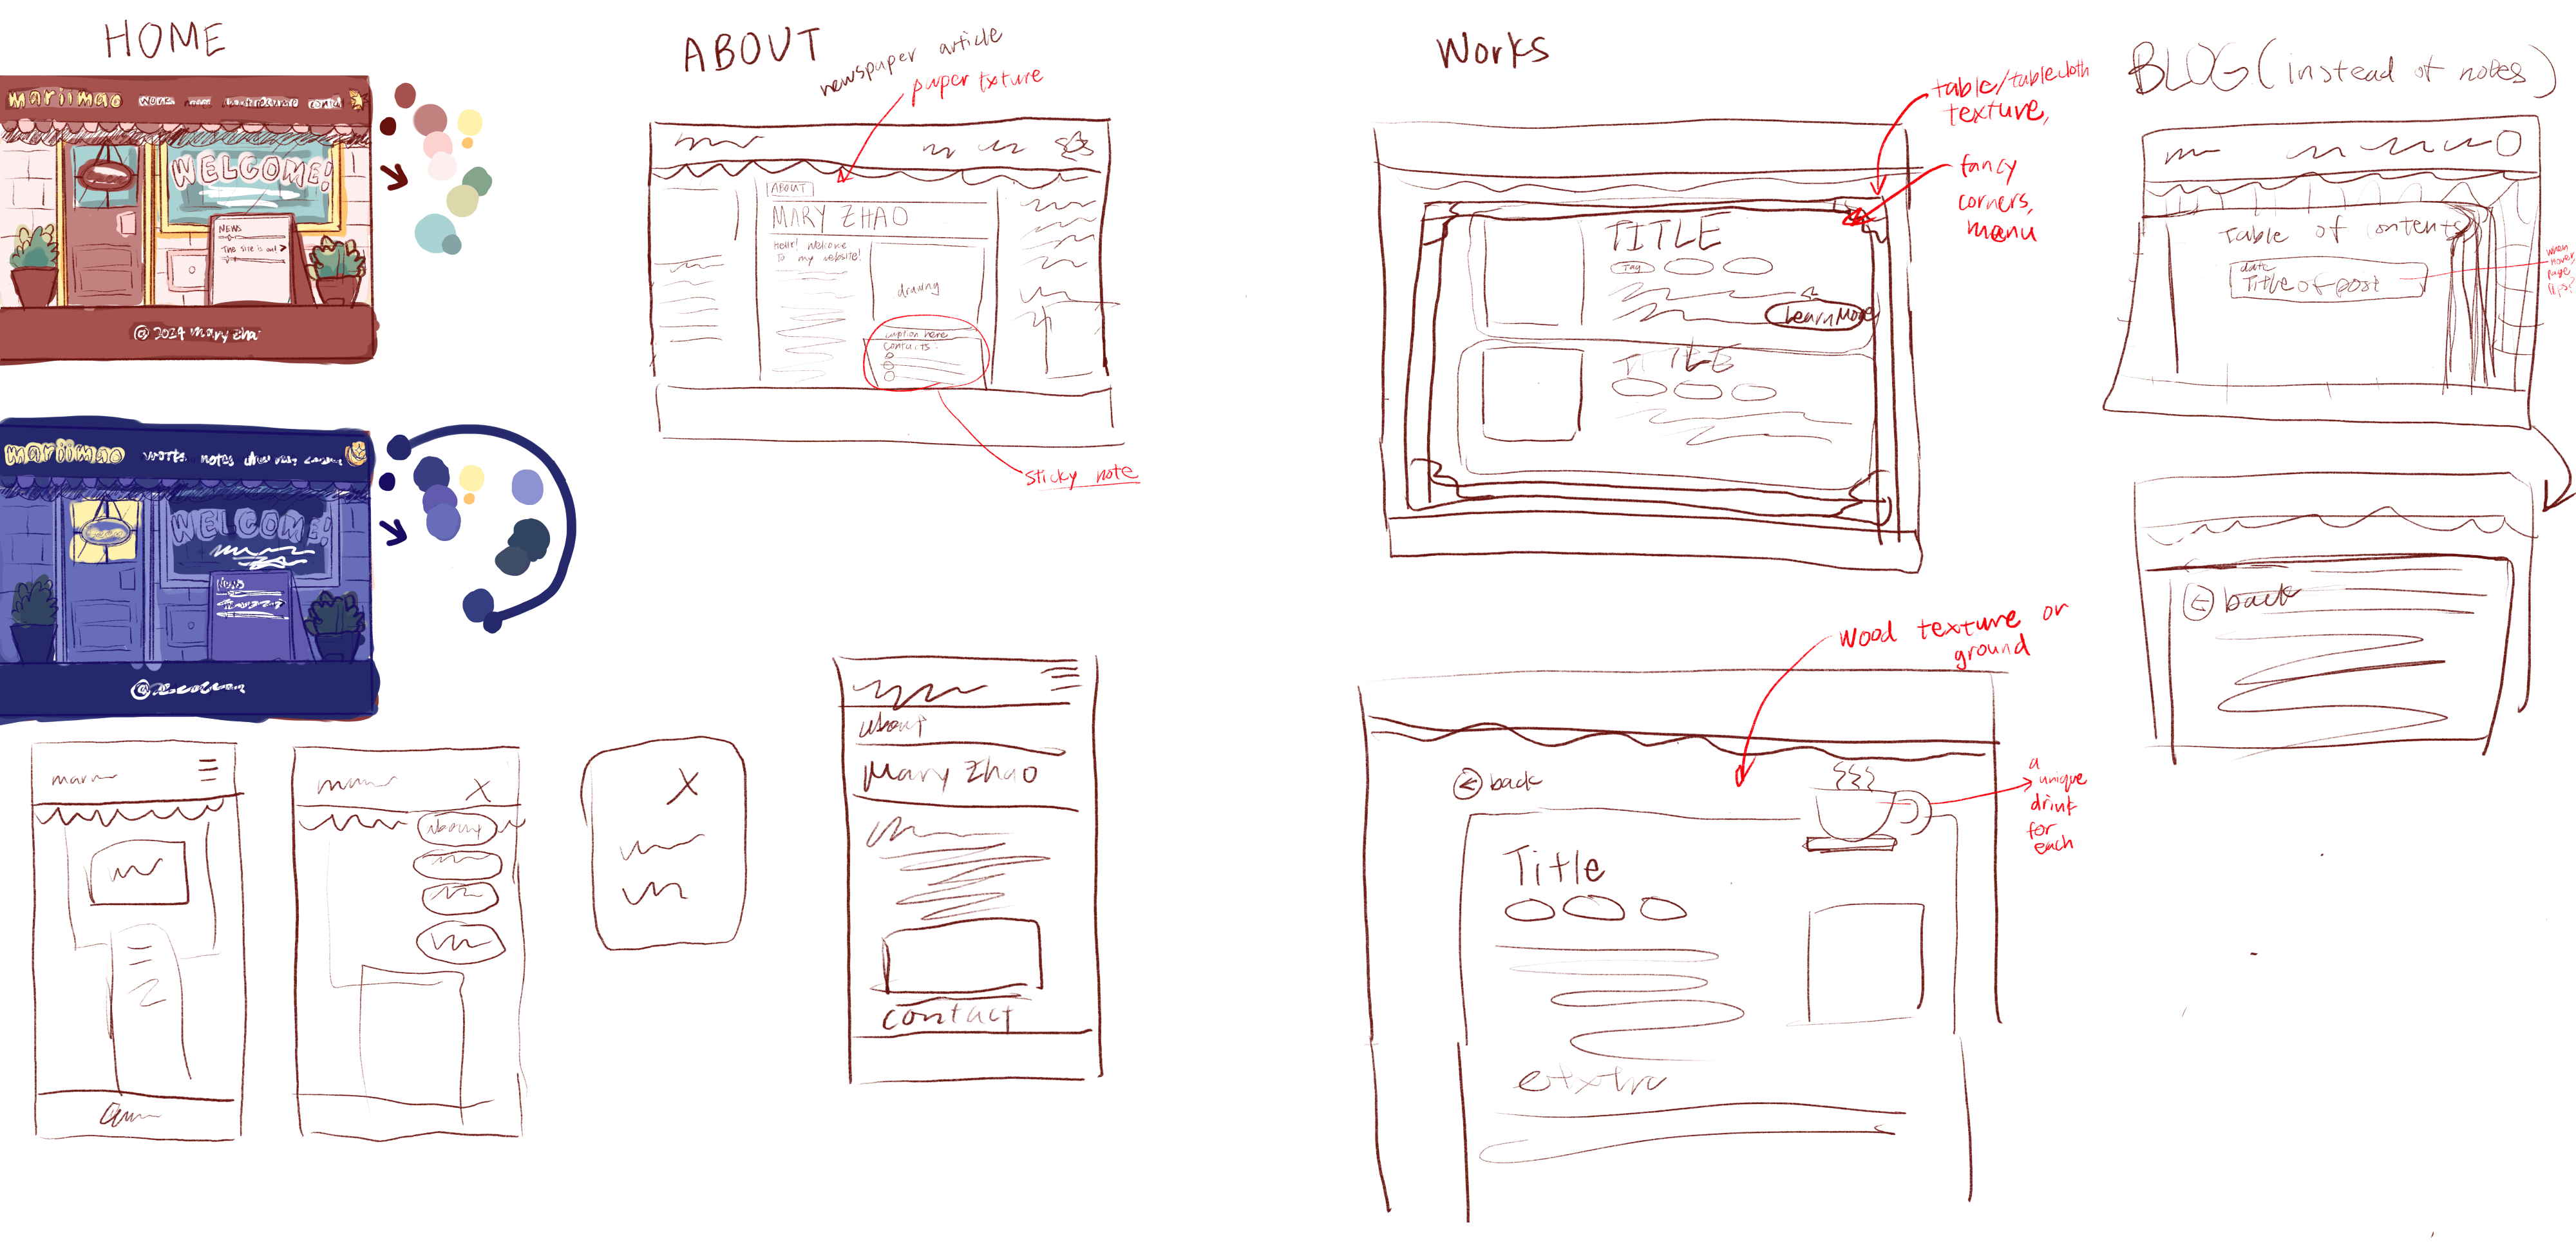 HOME
mariimao
works
WELCOME!
NEWS
The site is out >
© 2024 Mary Zha
mariimao
works notes
WELCOME!
NEWS
X
about
X
ABOUT
newspaper article
paper txture
ABOUT
MARY ZHAO
Hello! Welcome
to my website!
drawing
caption here
contacts:
sticky note
about
Mary Zhao
contact
Works
table/tablecloth
texture,
fancy
corners,
menu
TITLE
Tag
Learn More
TITLE
wood texture or
ground
back
a
unique
drink
for
each
Title
extra
BLOG (instead of notes)
Table of contents
date
Title of post
when
hover,
page
flips?
back